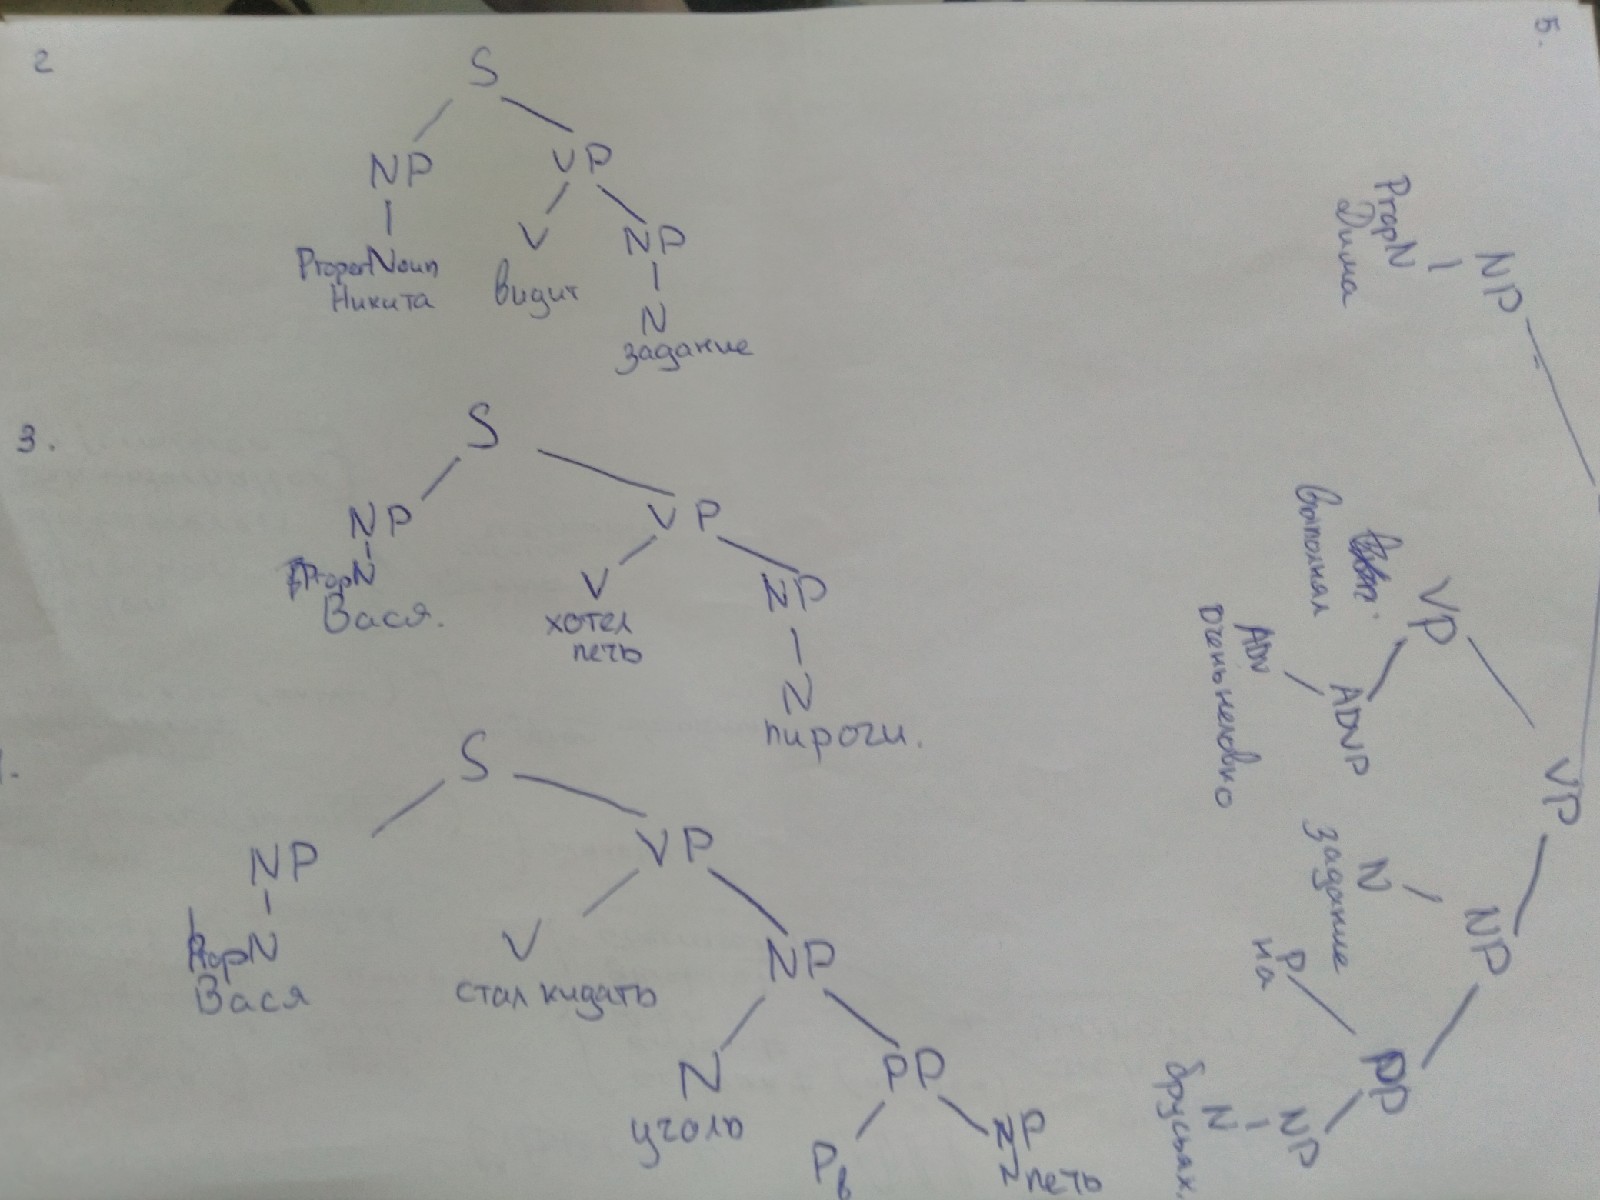 2
S
NP VP
V NP
ProperNoun
Никита
видит
N
задание
3.
S
NP VP
PropN
Вася.
V
хотел
печь
NP
N
пироги.
S
NP VP
PropN
Вася
V
стал кидать
NP
N
уголь
PP
P
в
NP
N печь
5.
NP
PropN
Дима
VP
VP
выполнял
ADVP
ADV
очень неловко
NP
N
задание
PP
P
на
NP
N
брусьях.